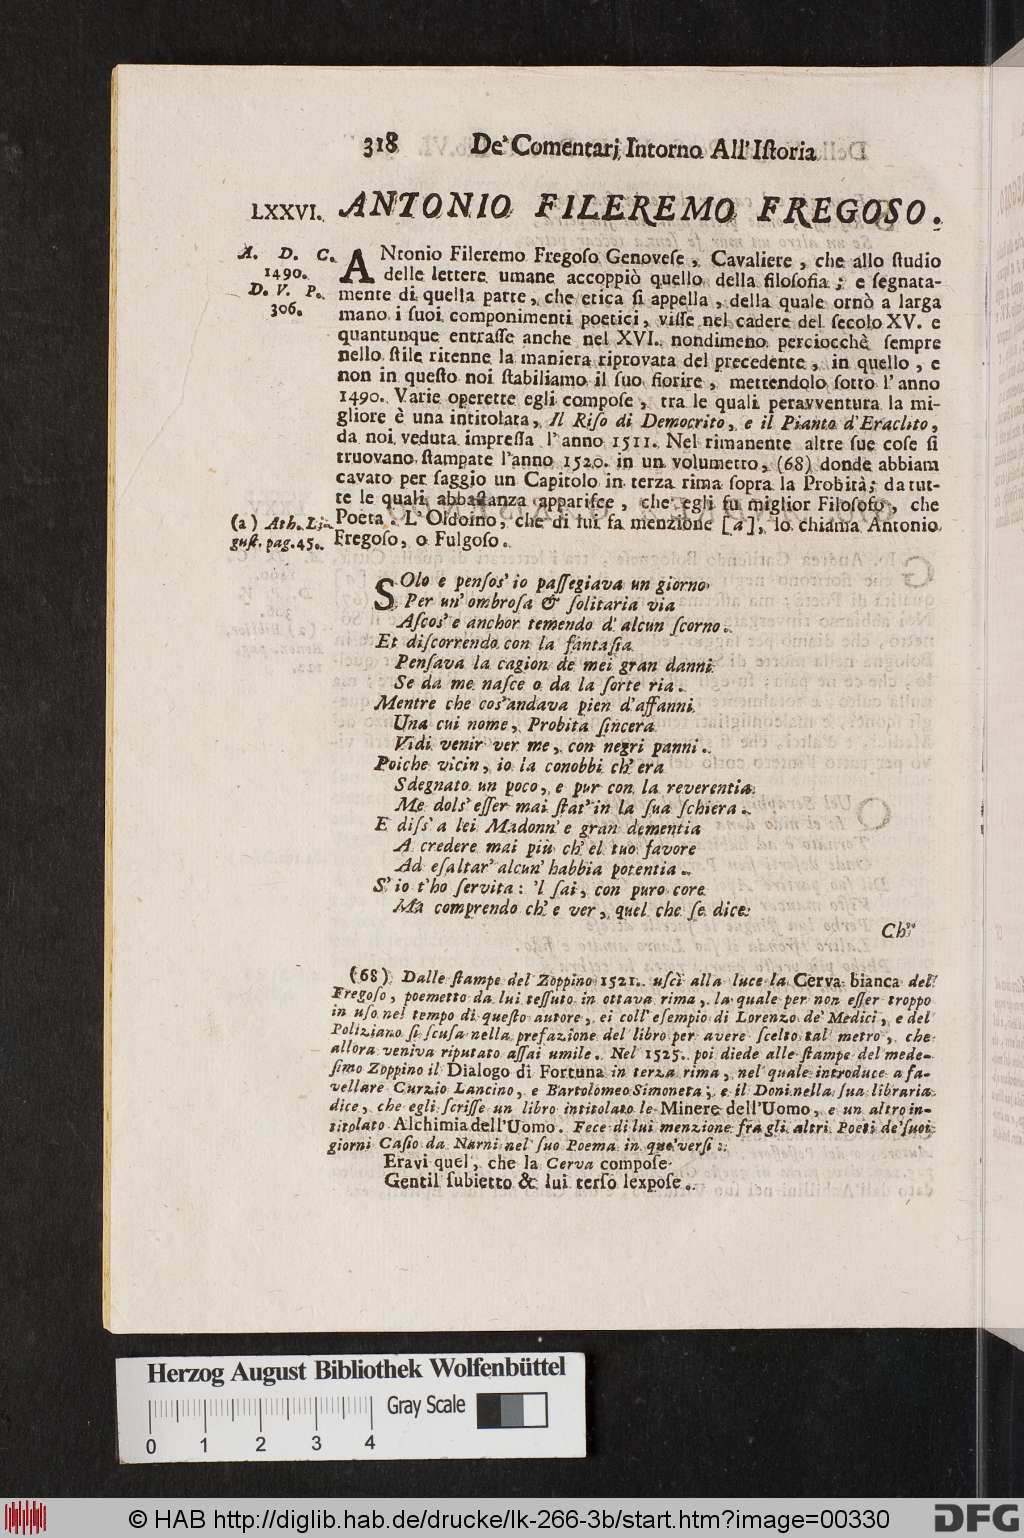 318 De' Comentarj Intorno All' Iſtoria
LXXVI. ANTONIO FILEREMO FREGOSO.
A. D. C.
1490.
D. V. P.
306.
ANtonio Fileremo Fregoſo Genoveſe, Cavaliere, che allo ſtudio
delle lettere umane accoppiò quello della filoſofia; e ſegnata-
mente di quella parte, che etica ſi appella, della quale ornò a larga
mano i ſuoi componimenti poetici, viſſe nel cadere del ſecolo XV. e
quantunque entraſſe anche nel XVI. nondimeno perciocchè ſempre
nello ſtile ritenne la maniera riprovata del precedente, in quello, e
non in queſto noi ſtabiliamo il ſuo fiorire, mettendolo ſotto l'anno
1490. Varie operette egli compoſe, tra le quali peravventura la mi-
gliore è una intitolata, Il Riſo di Democrito, e il Pianto d'Eraclito,
da noi veduta impreſſa l'anno 1511. Nel rimanente altre ſue coſe ſi
truovano ſtampate l'anno 1520. in un volumetto, (68) donde abbiam
cavato per ſaggio un Capitolo in terza rima ſopra la Probità; da tut-
te le quali abbaſtanza appariſce, che egli fu miglior Filoſofo, che
Poeta. L'Oldoino, che di lui fa menzione [a], lo chiama Antonio
Fregoſo, o Fulgoſo.
(a) Ath. Li-
guſt. pag. 45.
SOlo e penſoſ' io paſſegiava un giorno
Per un' ombroſa & ſolitaria via
Aſcoſ' e anchor temendo d' alcun ſcorno.
Et diſcorrendo con la fantaſia
Penſava la cagion de mei gran danni
Se da me naſce o da la ſorte ria.
Mentre che coſ' andava pien d'affanni
Una cui nome, Probita ſincera
Vidi venir ver me, con negri panni.
Poiche vicin, io la conobbi ch' era
Sdegnato un poco, e pur con la reverentia
Me dolſ' eſſer mai ſtat' in la ſua ſchiera.
E diſſ' a lei Madonn' e gran dementia
A credere mai più ch' el tuo favore
Ad eſaltar' alcun' habbia potentia.
S' io t'ho ſervita: 'l ſai, con puro core
Ma comprendo ch' e ver, quel che ſe dice:
Ch'
(68) Dalle ſtampe del Zoppino 1521. uſcì alla luce la Cerva bianca del
Fregoſo, poemetto da lui teſſuto in ottava rima, la quale per non eſſer troppo
in uſo nel tempo di queſto autore, ei coll' eſempio di Lorenzo de' Medici, e del
Poliziano ſi ſcuſa nella prefazione del libro per avere ſcelto tal metro, che
allora veniva riputato aſſai umile. Nel 1525. poi diede alle ſtampe del mede-
ſimo Zoppino il Dialogo di Fortuna in terza rima, nel quale introduce a fa-
vellare Curzio Lancino, e Bartolomeo Simoneta; e il Doni nella ſua libraria
dice, che egli ſcriſſe un libro intitolato le Minere dell'Uomo, e un altro in-
titolato Alchimia dell'Uomo. Fece di lui menzione fra gli altri Poeti de' ſuoi
giorni Caſio da Narni nel ſuo Poema in que' verſi:
Eravi quel, che la Cerva compoſe
Gentil ſubietto & lui terſo lexpoſe.
Herzog August Bibliothek Wolfenbüttel
Gray Scale
0 1 2 3 4
© HAB http://diglib.hab.de/drucke/lk-266-3b/start.htm?image=00330
DFG